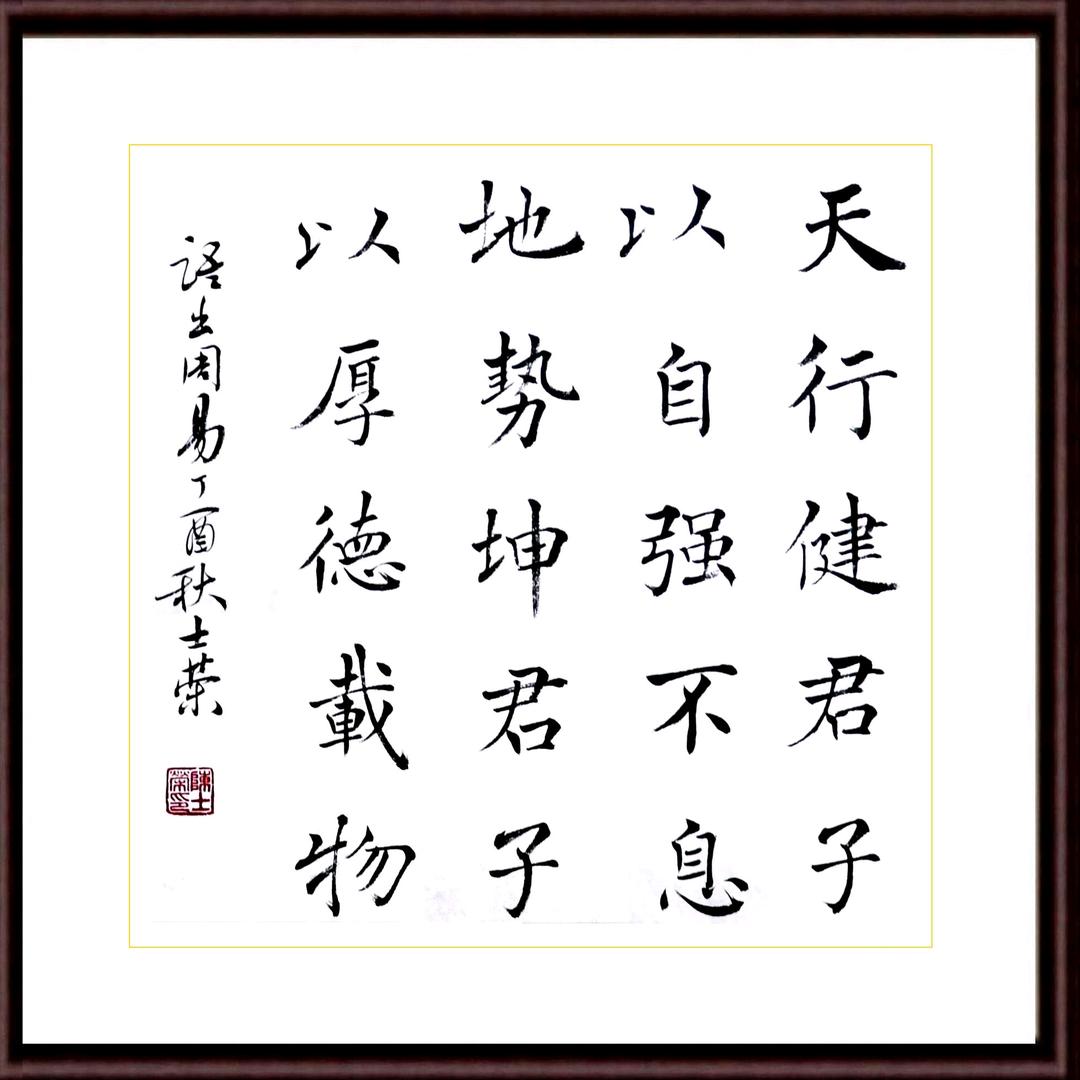 天行健君子
以自强不息
地勢坤君子
以厚德載物
語出周易丁酉秋士榮
陳士榮印